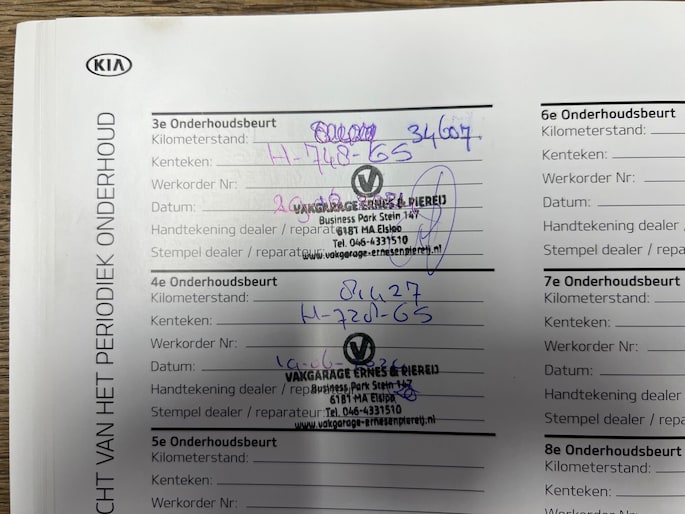 KIA
CHT VAN HET PERIODIEK ONDERHOUD
3e Onderhoudsbeurt
Kilometerstand: 34607
Kenteken: H-748-GS
Werkorder Nr:
Datum:
VAKGARAGE ERNES & PIEREIJ
Business Park Stein 147
Handtekening dealer / reparat
6181 MA Elsloo
Tel. 046-4331510
Stempel dealer / reparateur:
www.vakgarage-ernesenpiereij.nl
4e Onderhoudsbeurt
Kilometerstand:
Kenteken:
Werkorder Nr:
Datum:
VAKGARAGE ERNES & PIEREIJ
Business Park Stein 147
Handtekening dealer / rep
6181 MA Elsloo
Stempel dealer / reparateur:
Tel. 046-4331510
www.vakgarage-ernesenpiereij.nl
5e Onderhoudsbeurt
Kilometerstand:
Kenteken:
Werkorder Nr:
6e Onderhoudsbeurt
Kilometerstand:
Kenteken:
Werkorder Nr:
Datum:
Handtekening dealer
Stempel dealer / repa
7e Onderhoudsbeurt
Kilometerstand:
Kenteken:
Werkorder Nr:
Datum:
Handtekening dealer
Stempel dealer / repa
8e Onderhoudsbeurt
Kilometerstand:
Kenteken: